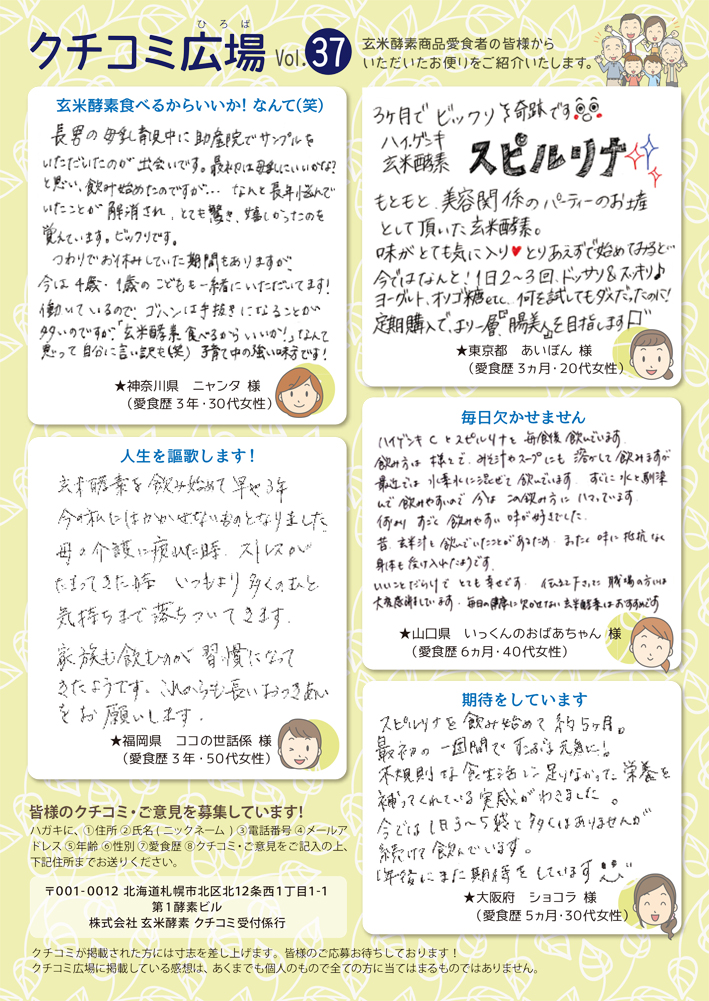 ひろば
クチコミ広場 Vol.37
玄米酵素商品愛食者の皆様から
いただいたお便りをご紹介いたします。
玄米酵素食べるからいいか! なんて(笑)
長男の母乳育児中に助産院でサンプルを
いただいたのが出会いです。最初は母乳にいいかな?
と思い、飲み始めたのですが… なんと長年悩んで
いたことが解消され、とても驚き、嬉しかったのを
覚えています。ビックリです。
つわりでお休みしていた期間もありますが、
今は4歳・1歳のこどもも一緒にいただいてます!
働いているので、ゴハンは手抜きになることが
多いのですが、「玄米酵素食べるからいいか!」なんて
思って自分に言い訳も(笑) 子育て中の強い味方です!
★神奈川県 ニャンタ 様
(愛食歴3年・30代女性)
人生を謳歌します!
玄米酵素を飲み始めて早や3年
今の私にはかかせないものとなりました
母の介護に疲れた時、ストレスが
たまってきた時 いつもより多くのむと
気持ちまで落ちついてきます。
家族も飲むのが習慣になって
きたようです。これからも長いおつきあい
をお願いします。
★福岡県 ココの世話係 様
(愛食歴3年・50代女性)
皆様のクチコミ・ご意見を募集しています!
ハガキに、①住所 ②氏名(ニックネーム) ③電話番号 ④メールア
ドレス ⑤年齢 ⑥性別 ⑦愛食歴 ⑧クチコミ・ご意見をご記入の上、
下記住所までお送りください。
〒001-0012 北海道札幌市北区北12条西1丁目1-1
第1酵素ビル
株式会社 玄米酵素 クチコミ受付係行
3ヶ月でビックリな奇跡です
ハイゲンキ
玄米酵素 スピルリナ
もともと、美容関係のパーティーのお土産
として頂いた玄米酵素。
味がとても気に入り♥とりあえずで始めてみると…
今ではなんと!1日2〜3回、ドッサリ&スッキリ♪
ヨーグルト、オリゴ糖etc、何を試してもダメだったのに!
定期購入で、より一層『腸美人』を目指します
★東京都 あいぽん 様
(愛食歴3ヵ月・20代女性)
毎日欠かせません
ハイゲンキCとスピルリナを毎食後飲んでいます。
飲み方は様々で、みそ汁やスープにも溶かして飲みますが
最近では水素水に混ぜて飲んでいます。すぐに水と馴染
んで飲みやすいので今はこの飲み方にハマっています。
何よりすごく飲みやすい味が好きでした。
昔、玄米汁を飲んでいたことがあるため、まったく味に抵抗なく
身体も受け入れたようです。
いいことだらけでとても幸せです。伝えて下さった職場の方には
大変感謝しています。毎日の健康に欠かせない玄米酵素はおすすめです
★山口県 いっくんのおばあちゃん 様
(愛食歴6ヵ月・40代女性)
期待をしています
スピルリナを飲み始めて約5ヶ月。
最初の一週間ですこぶる元気に!
不規則な食生活に足りなかった栄養を
補ってくれている実感がわきました。
今では1日3〜5袋と多くはありませんが
続けて飲んでいます。
1年後にまた期待をしています
★大阪府 ショコラ 様
(愛食歴5ヵ月・30代女性)
クチコミが掲載された方には寸志を差し上げます。皆様のご応募お待ちしております!
クチコミ広場に掲載している感想は、あくまでも個人のもので全ての方に当てはまるものではありません。